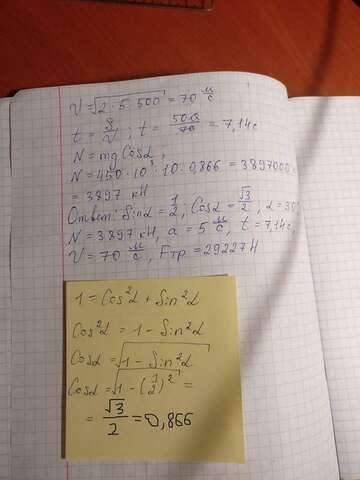 V = √2·5·500 = 70 м/с
t = S/V ; t = 500/70 = 7,14 с
N = mg Cosα,
N = 450·10³·10·0,866 = 3897000
= 3897 кН
Ответ: Sinα = 1/2, Cosα = √3/2, α = 30°
N = 3897 кН, a = 5 м/с, t = 7,14с
V = 70 м/с, Fтр = 29227 Н
1 = Cos²α + Sin²α
Cos²α = 1 - Sin²α
Cosα = √1 - Sin²α
Cosα = √1 - (1/2)² =
= √3/2 = 0,866